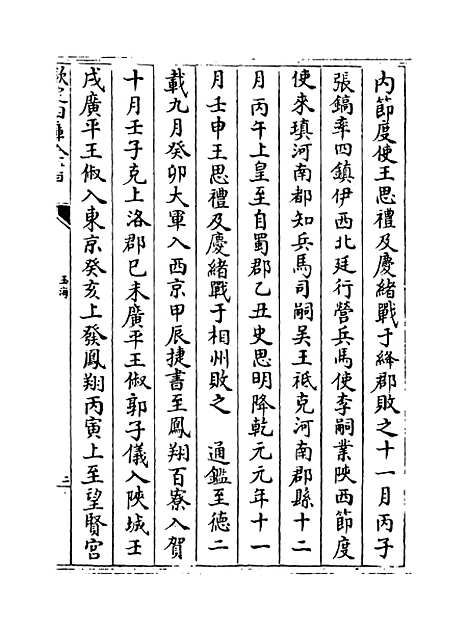 內節度使王思禮及慶緒戰于絳郡敗之十一月丙子
張鎬率四鎮伊西北廷行營兵馬使李嗣業陜西節度
使來瑱河南都知兵馬司嗣吳王祗克河南郡縣十二
月丙午上皇至自蜀郡乙丑史思明降乾元元年十一
月壬申王思禮及慶緒戰于相州敗之 通鑑至德二
載九月癸卯大軍入西京甲辰捷書至鳳翔百寮入賀
十月壬子克上洛郡巳未廣平王俶郭子儀入陜城壬
戌廣平王俶入東京癸亥上發鳳翔丙寅上至望賢宮
欽定四庫全書
玉海
三